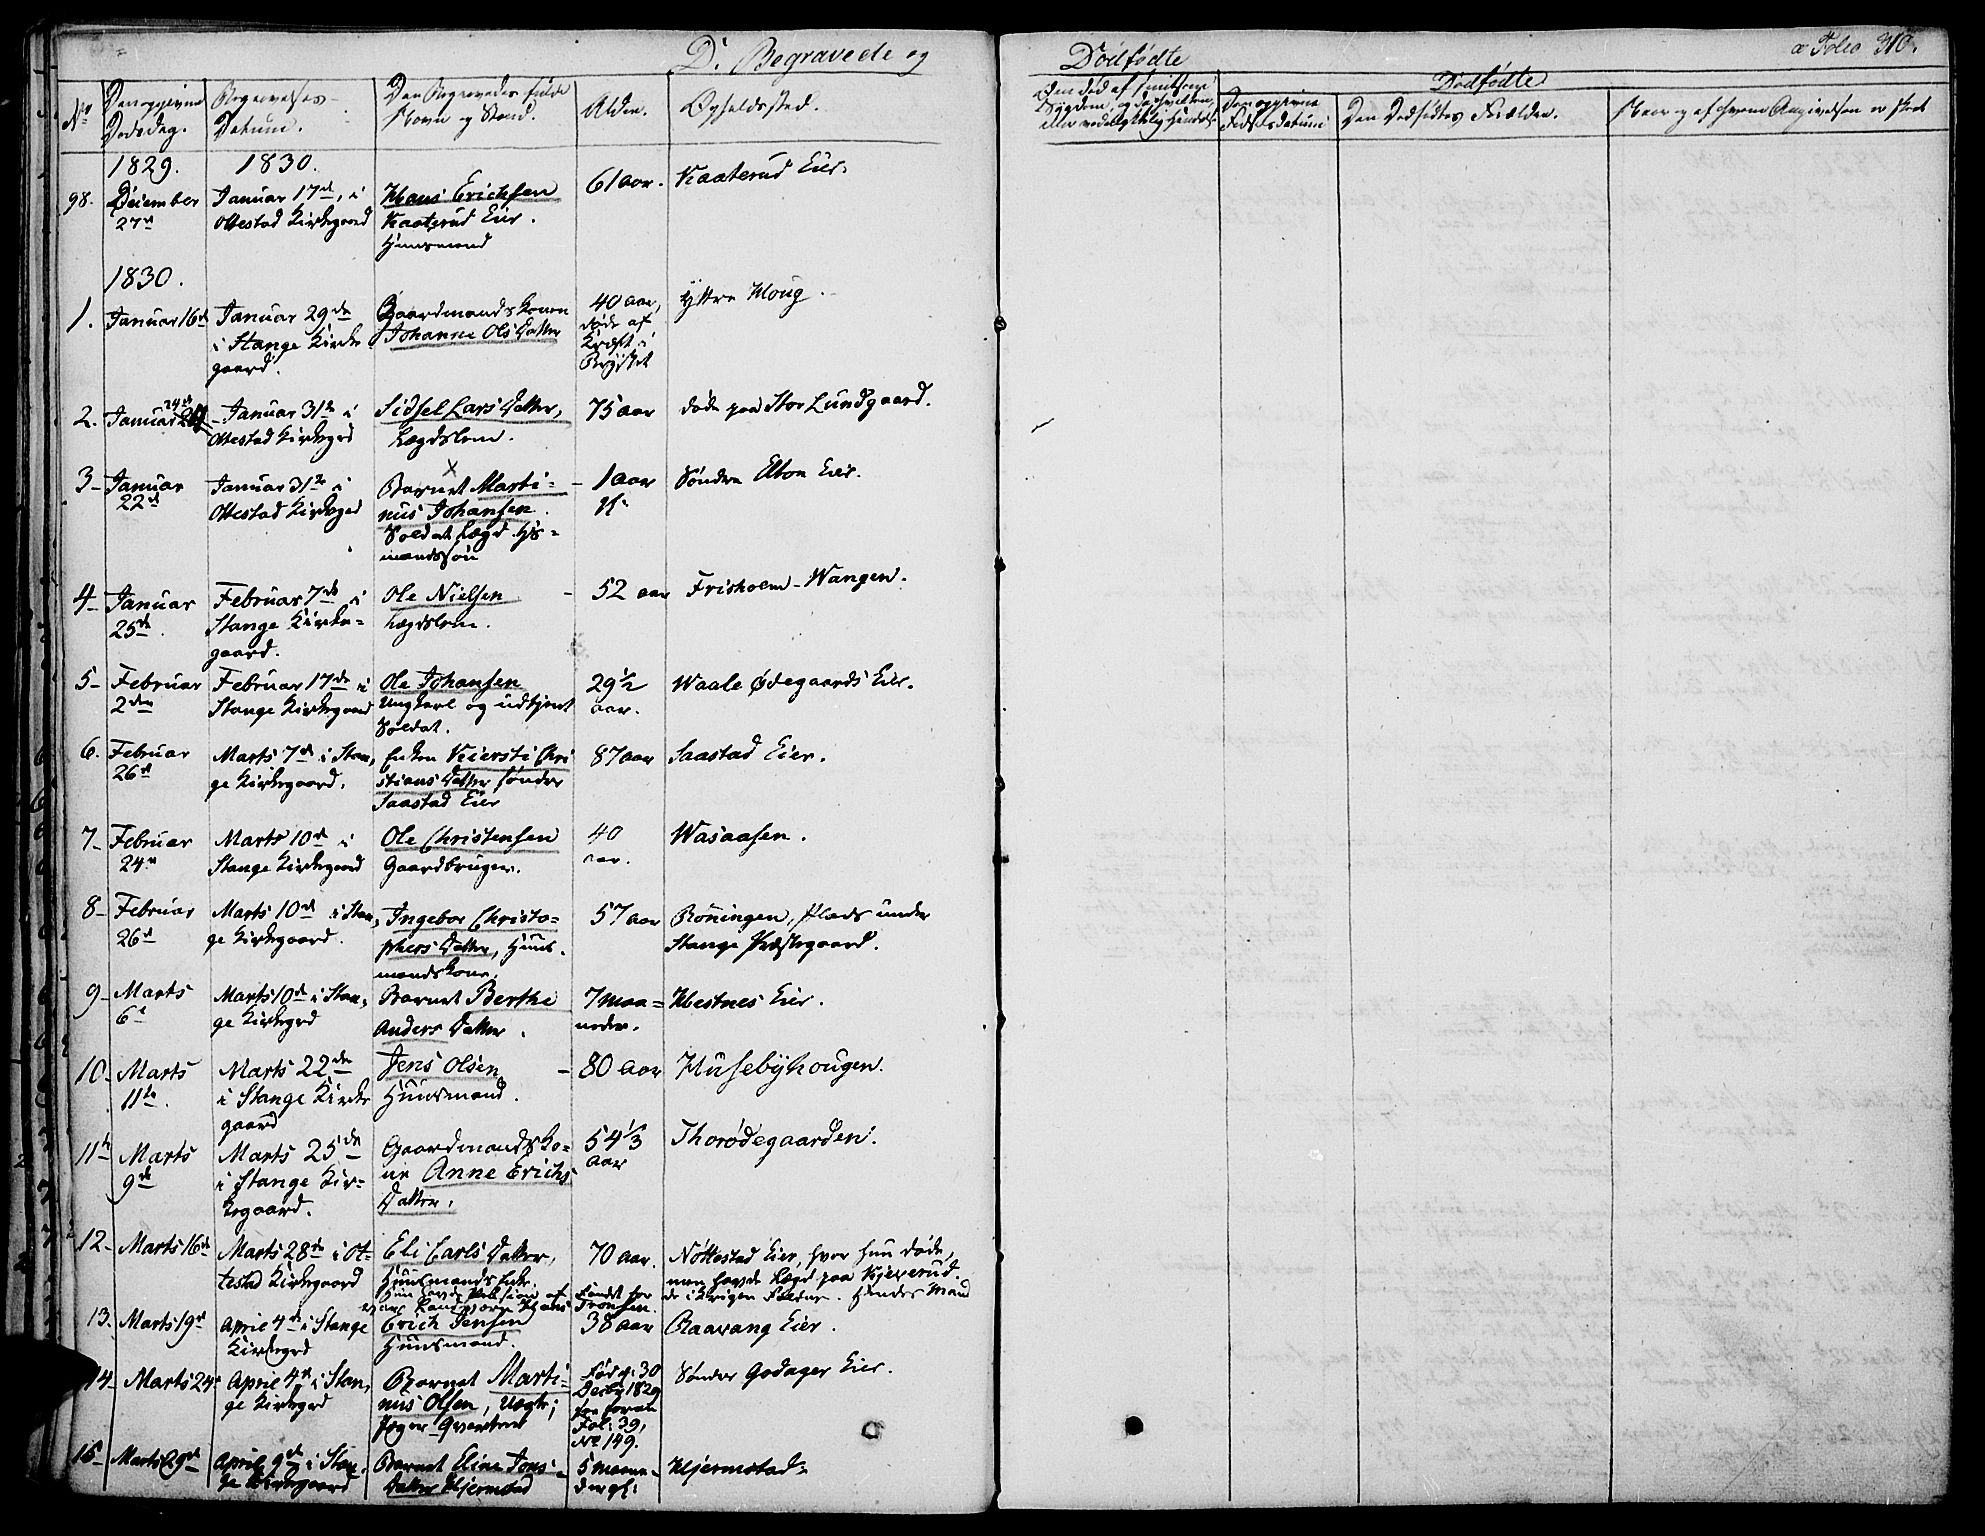 D. Begravede og
Dödfödte
a Folio 310.
No
Den opgivne Dødsdag.
Begravelses-Datum.
Den Begravedes fulde Navn og Stand.
Alder.
Opholdssted.
Dødfødte
Den opgivne Fødselsdatum
Den Dødfødtes Forældre.
Naar og af hvem Angivelsen er skeet
1829. 1830.
98. December 27de
Januar 17de, i Ottestad Kirkegaard
Hans Erichsen Kaaterud Eier. Huusmand
61 aar.
Kaaterud Eier.
1830.
1. Januar 16de
Januar 29de i Stange Kirkegaard.
Gaardmandskonen Johanne Ols Datter
40 aar, døde af Kræft i Brystet
Yttre Houg.
2. Januar 24de
Januar 31te i Ottestad Kirkegrd
Sidsel Lars Datter, Lægdslem.
75 aar
døde paa Stor Lundgaard.
3 Januar 22de
Januar 31te i Ottestad Kirkegrd
Barnet Martinus Johansen. Soldat, Lægd. Hs=mandssøn
1 aar gl.
Søndre Elton Eier.
4 Januar 25de.
Februar 7de i Stange Kirkegaard.
Ole Nielsen Lægdslem.
52 aar
Frisholm-Wangen.
5 Februar 2den
Februar 17de i Stange Kirkegaard
Ole Johansen Ungkarl og udtjent Soldat.
29 1/2 aar.
Waale Ødegaards Eier.
6. Februar 26de
Marts 7de i Stange Kirkegaard.
Enken Kiersti Christians Datter søndre Saastad Eier
87 aar
Saastad Eier.
7 Februar 24de
Marts 10de i Stange Kirkegaard
Ole Christensen Gaardbruger.
40 aar.
Wasaasen.
8 Februar 26de
Marts 10de i Stange Kirkegaard.
Ingebor Christophers Datter, Huusmandskone.
57 aar
Bönningen, Plads under Stange Præstegaard.
9 Marts 6te
Marts 10de i Stange Kirkegrd
Barnet Berthe Anders Datter.
7 maaneder.
Hestnes Eier.
10 Marts 11te.
Marts 22de i Stange Kirkegaard
Jens Olsen Huusmand.
80 aar
Husebyhougen.
11te Marts 9de
Marts 25de i Stange Kirkegaard.
Gaardmandskone Anne Erichs Datter.
54 1/3 aar
Thorødegaarden.
12. Marts 16de
Marts 28de i Ottestad Kirkegaard
Eli Carls Datter, Huusmands Enke.
70 aar.
Nøttestad Eier, hvor hun døde, men havde Lægd paa Kjeverud.
13. Marts 19de
April 4de i Stange Kirkegrd
Erich Jensen Huusmand.
38 aar
Raavang Eier.
14 Marts 24
April 4de i Stange Kirkegrd
Barnet Martinus Olsen,
Født d: 30 Decbr 1829 Fol: 39, No 149.
Søndre Godager Eier.
15 Marts 29de
April 9de i Stange Kirkegaard
Barnet Eline Jens Datter Hjermstad
5 maaneder gl:
Hjermstad